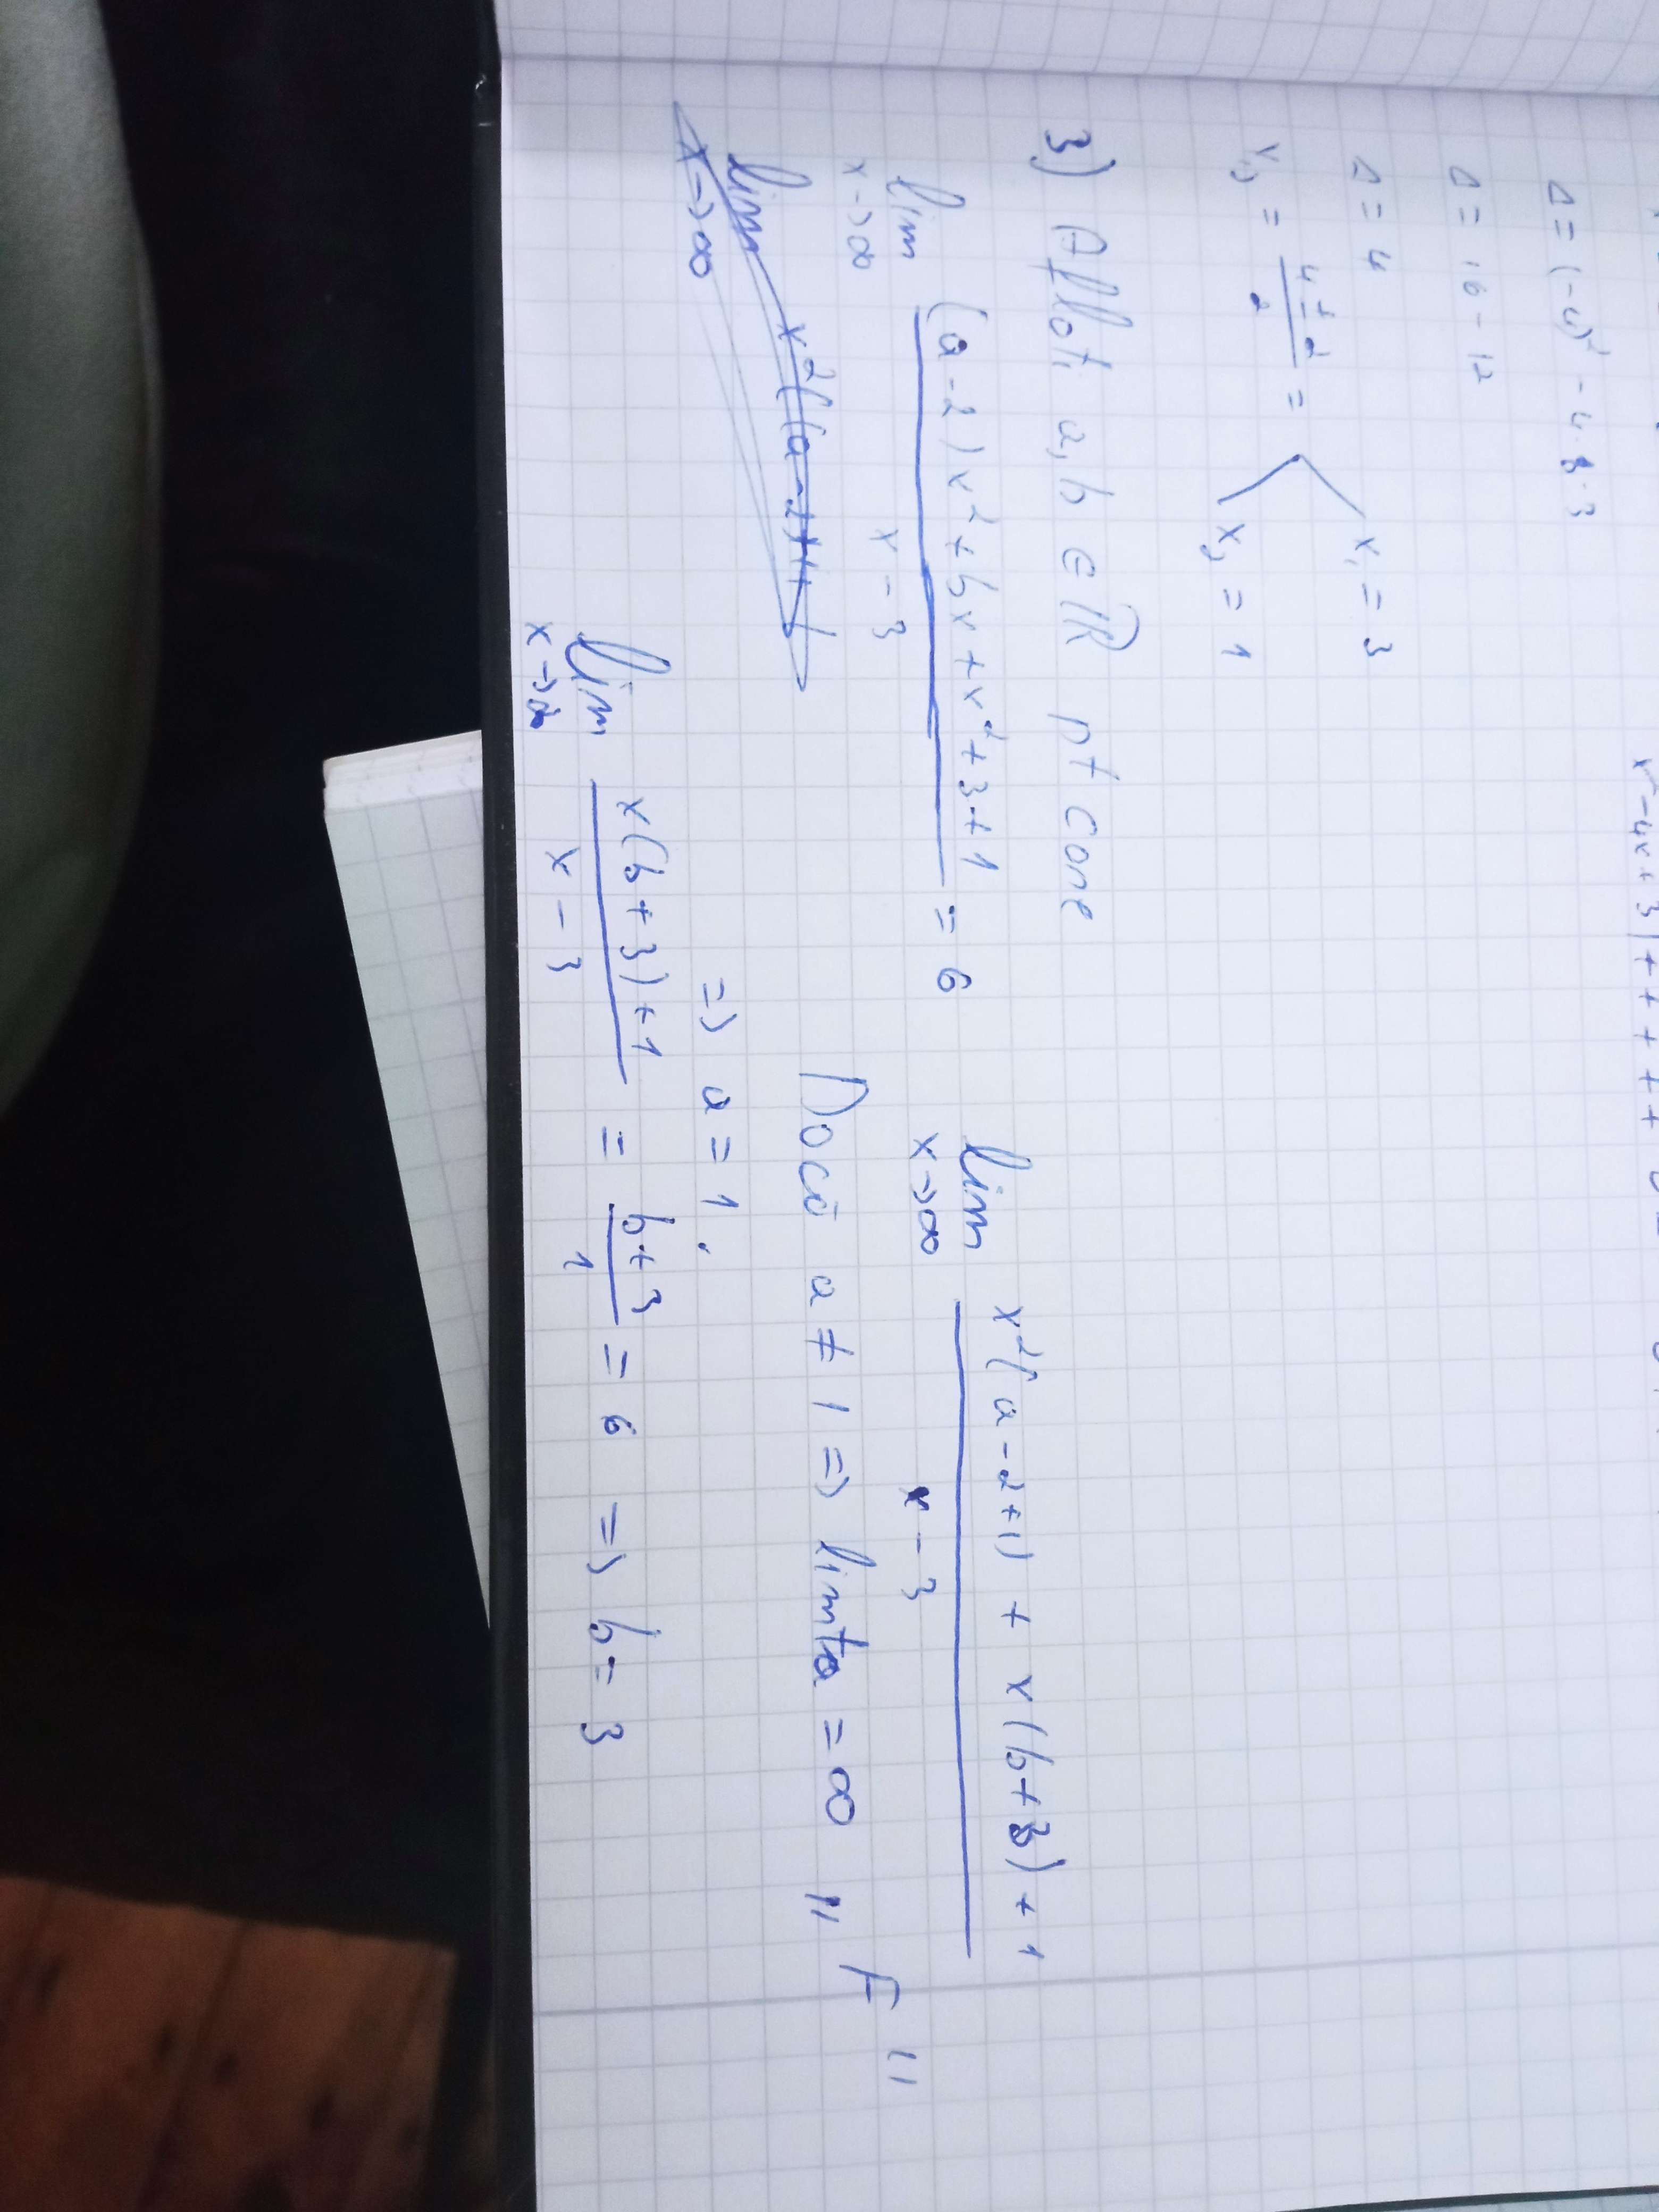 x² - 4x + 3 | + + + + +
Δ = (-4)² - 4·1·3
Δ = 16 - 12
Δ = 4
x₁,₂ = (4 ± 2)/2 =
x₁ = 3
x₂ = 1
3) Aflati a, b ∈ ℝ pt care
lim x→∞ ((a-2)x² + bx + x² + 3 + 1)/(x - 3) = 6
lim x→∞ x²((a-2)+1
lim x→∞ (x²(a-2+1) + x(b+3) + 1)/(x - 3)
Dacă a ≠ 1 => limta = ∞ „F"
=> a = 1.
lim x→∞ (x(b+3)+1)/(x - 3) = (b+3)/1 = 6 => b = 3